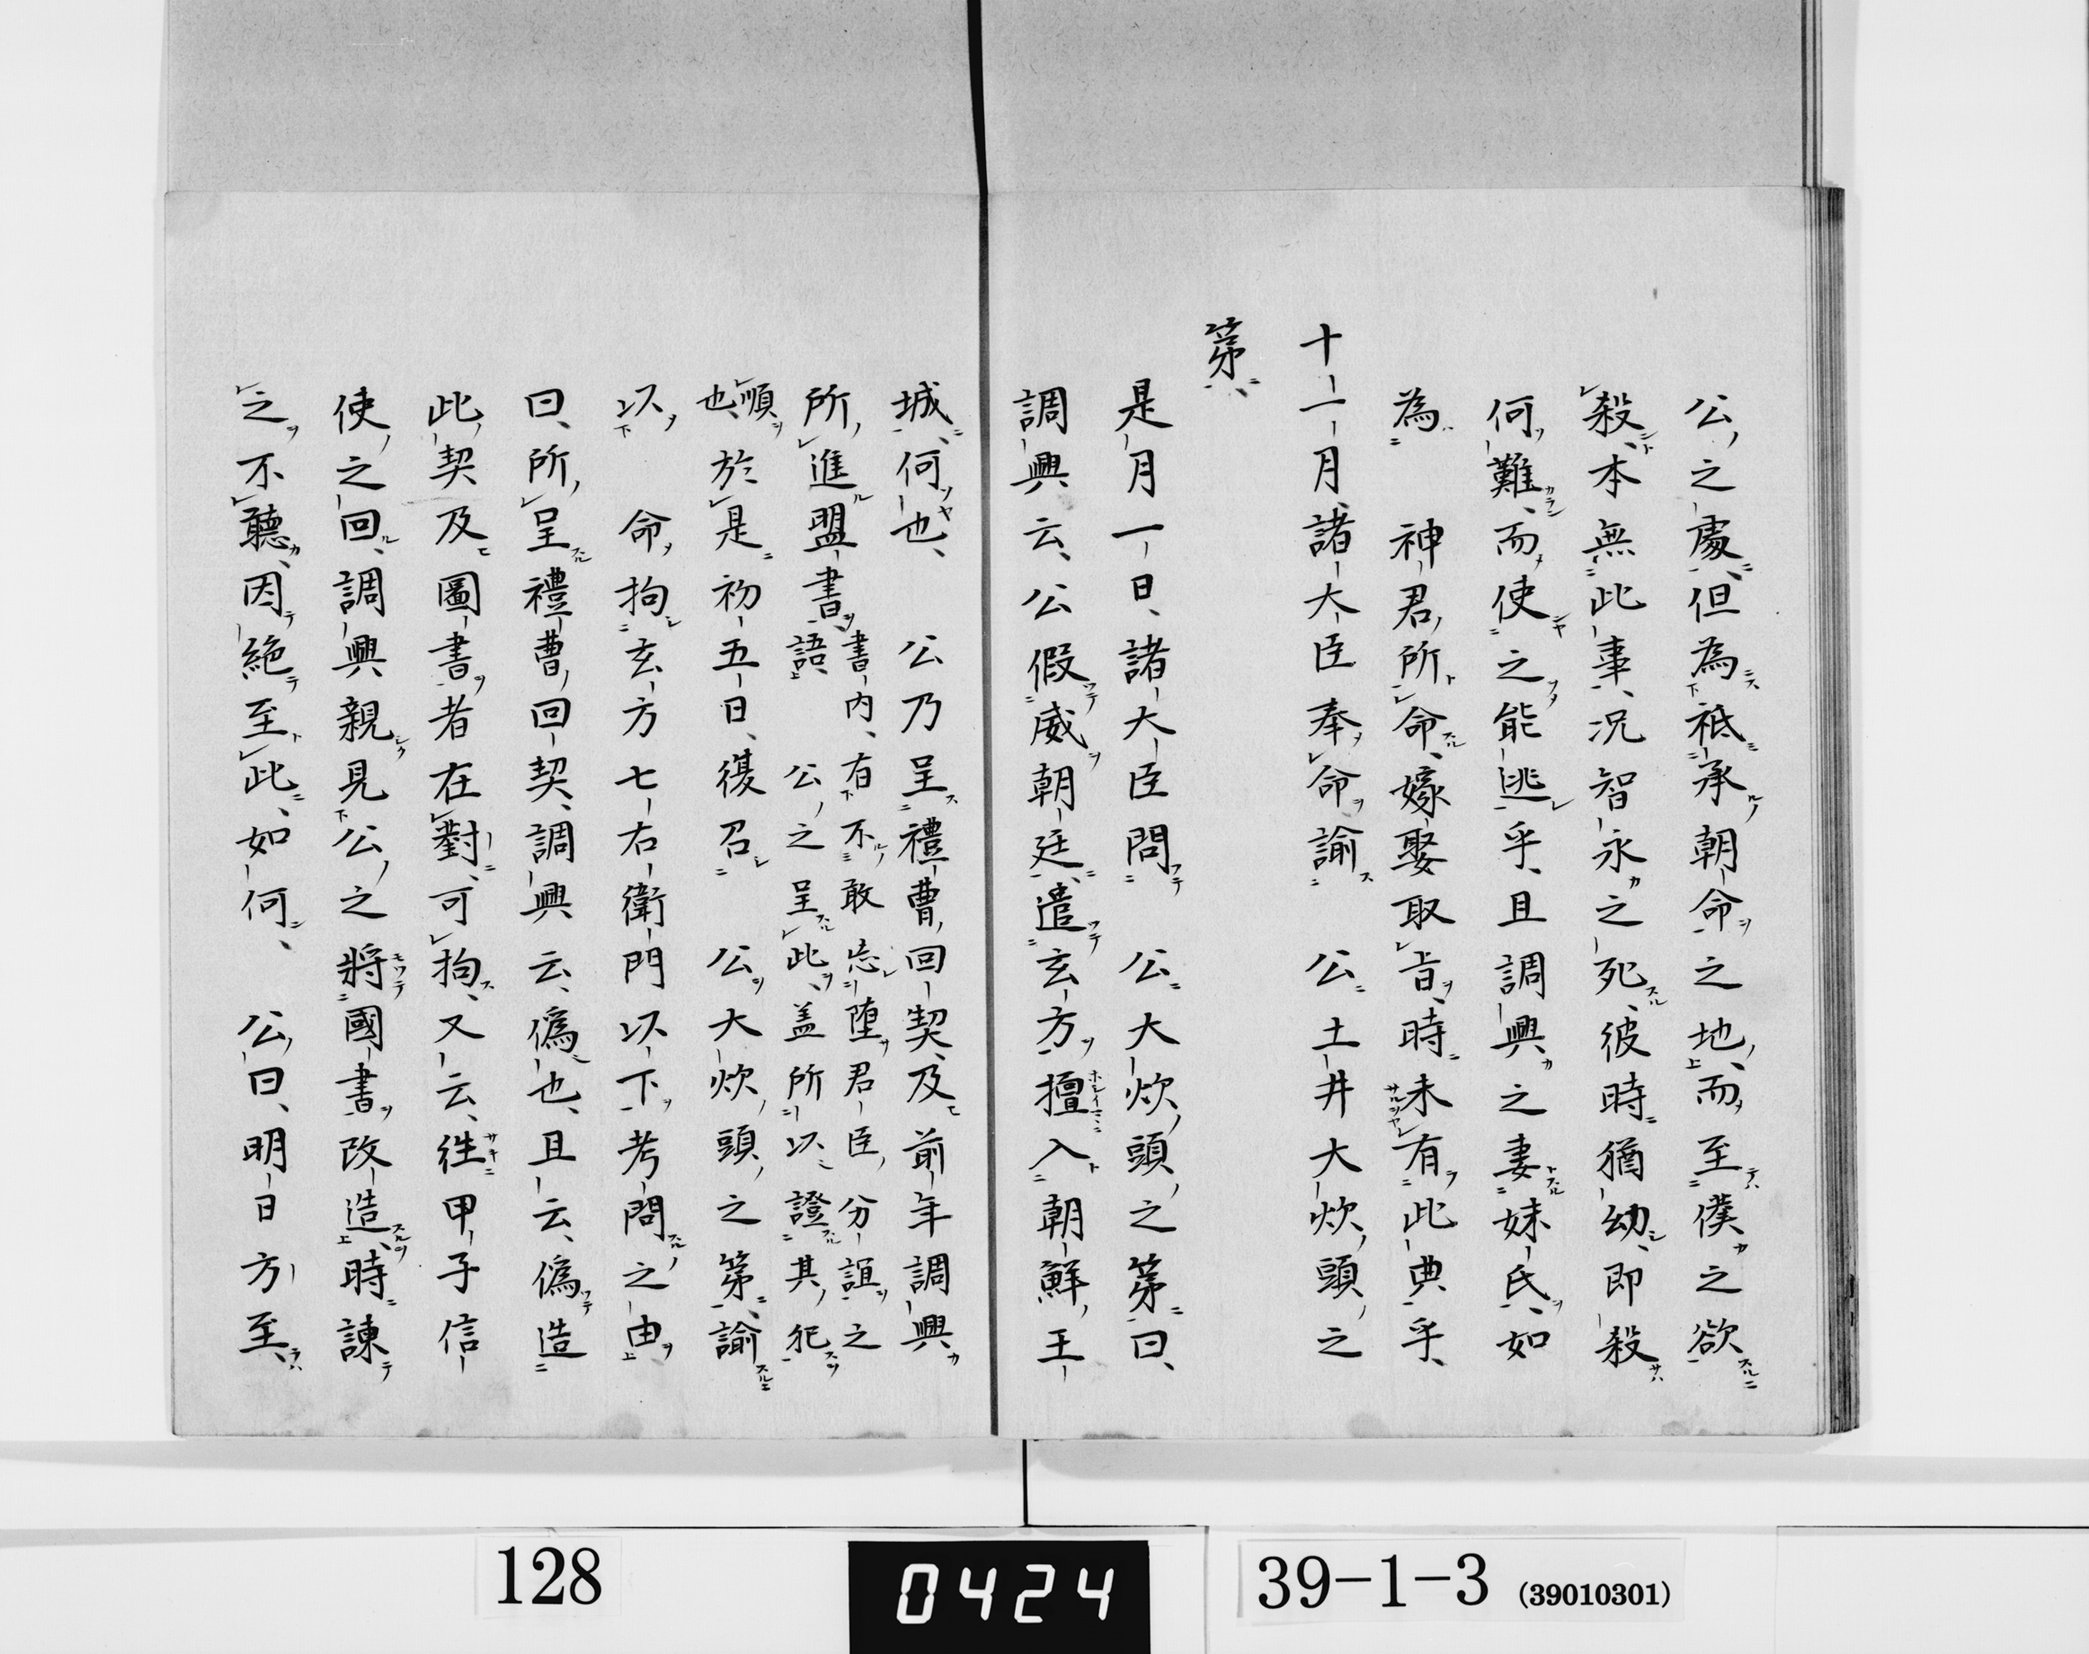 公之處但為祗承朝命之地而至僕之欲
殺本無此事況智永之死彼時猶幼即殺
何難而使之能逃乎且調興之妻妹氏如
為　神君所命嫁娶取旨時未有此典乎
十一月諸大臣奉命諭　公土井大炊頭之
第
是月一日諸大臣問　公大炊頭之第曰
調興云公假威朝廷遣玄方擅入朝鮮王
城何也　公乃呈禮曹回契及前年調興
所進盟書書内有不敢忘墮君臣分誼之
語　公之呈此盖所以證其犯
順也於是初五日復召　公大炊頭之第諭
以　命拘玄方七右衛門以下考問之由
曰所呈禮曹回契調興云偽也且云偽造
此契及圖書者在對可拘又云徃甲子信
使之回調興親見公之將國書改造時諫
之不聽因絶至此如何　公曰明日方至
128
0424
39-1-3 (39010301)